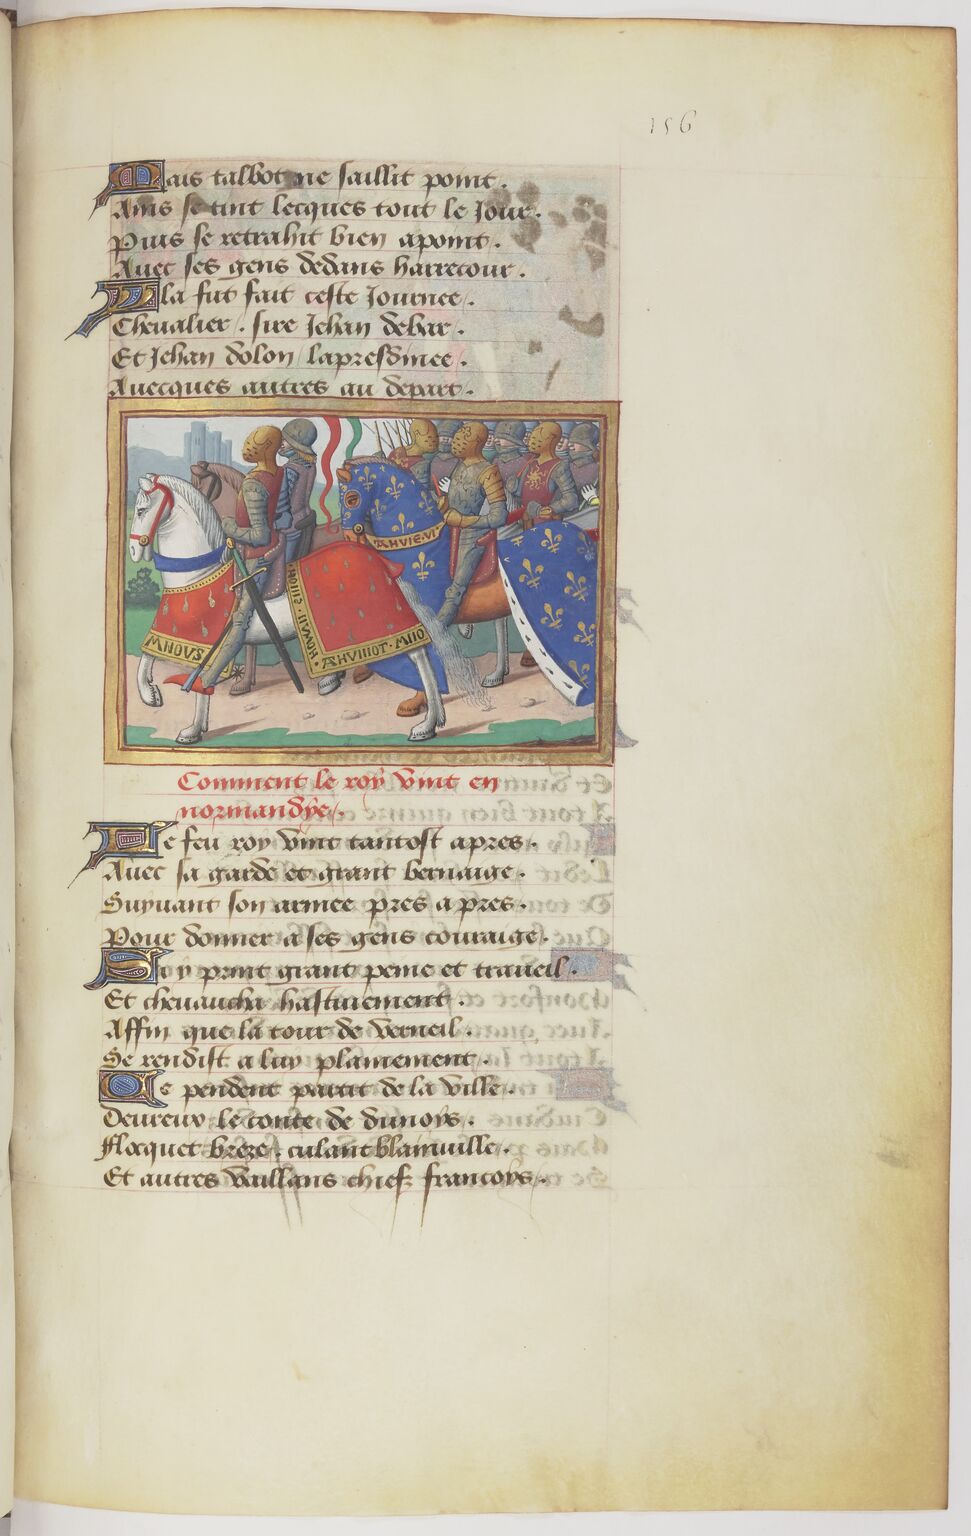 156
Mais talbot ne saillit point.
Ains se tint lecques tout le Jour.
Puis se retrahit bien apoint.
Auec ses gens dedans harrecour.
La fut fait ceste Journee.
Cheualier. sire Jehan debar.
Et Jehan dolon lapresdinee.
Auecques autres au depart.
AHVIE·VI
MNOVS
HOWVII
AHVIIIOT·MIIO
Comment le roy vint en
normandye.
Le feu roy vint tantost apres.
Auec sa garde et grant bernaige.
Suyuant son armee pres a pres.
Pour donner a ses gens couraige.
Si y print grant peine et traueil.
Et cheuaucha hastiuement.
Affin que la tour de verneil.
Se rendist a luy plainement.
Ce pendent partit de la ville.
Deureux le conte de dunoys.
Flocquet breze. culant blainuille.
Et autres vaillans chiefz francoys.